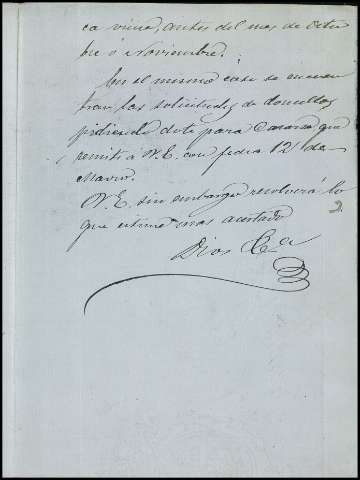 ca viene, antes del mes de Octu
bre ó Noviembre.
En el mismo caso se encuen
tran las solicitudes de doncellas
pidiendo dote para casarse que
remití á V.E. con fecha 12 de
Marzo.
V.E. sin embargo resolverá lo
que estime mas acertado
2.
Dios &ca